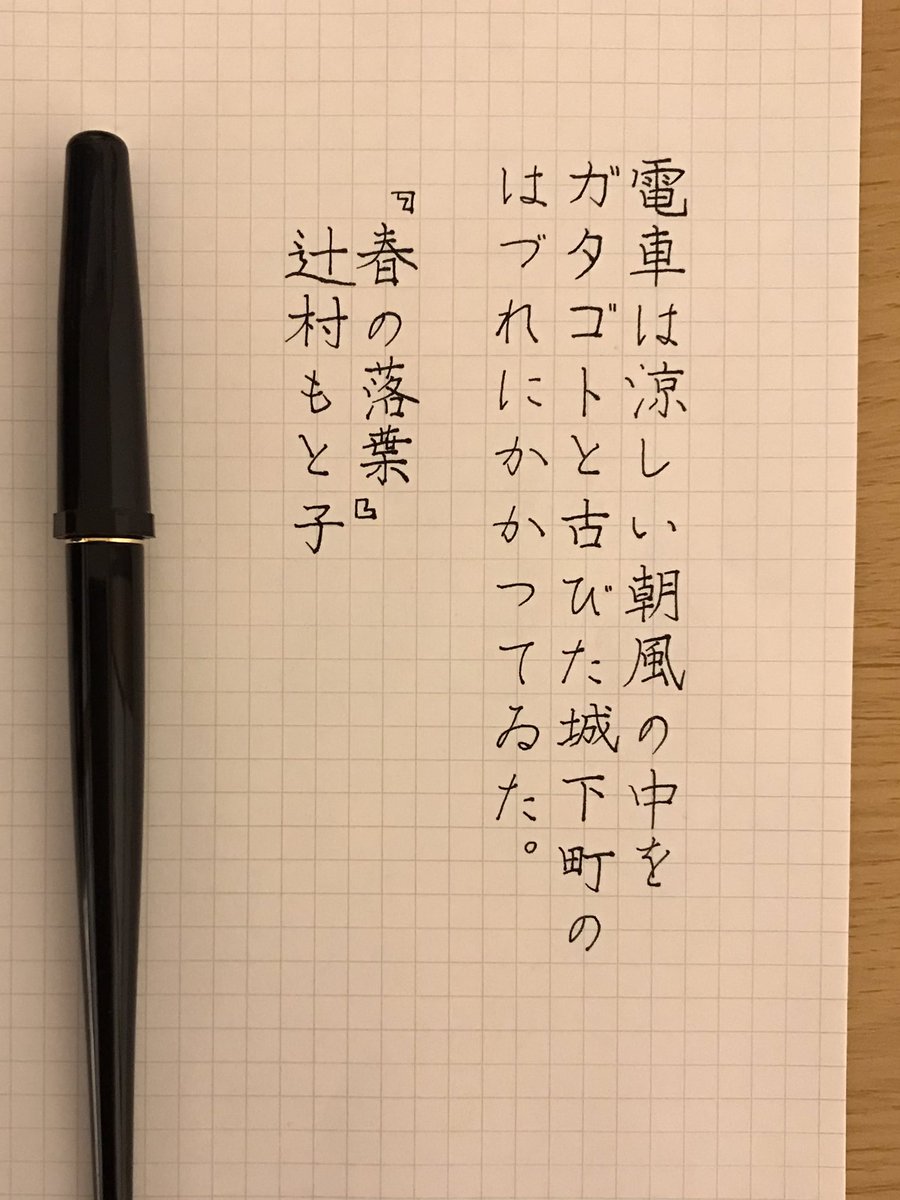 電車は涼しい朝風の中を
ガタゴトと古びた城下町の
はづれにかかつてゐた。
『春の落葉』
辻村もと子